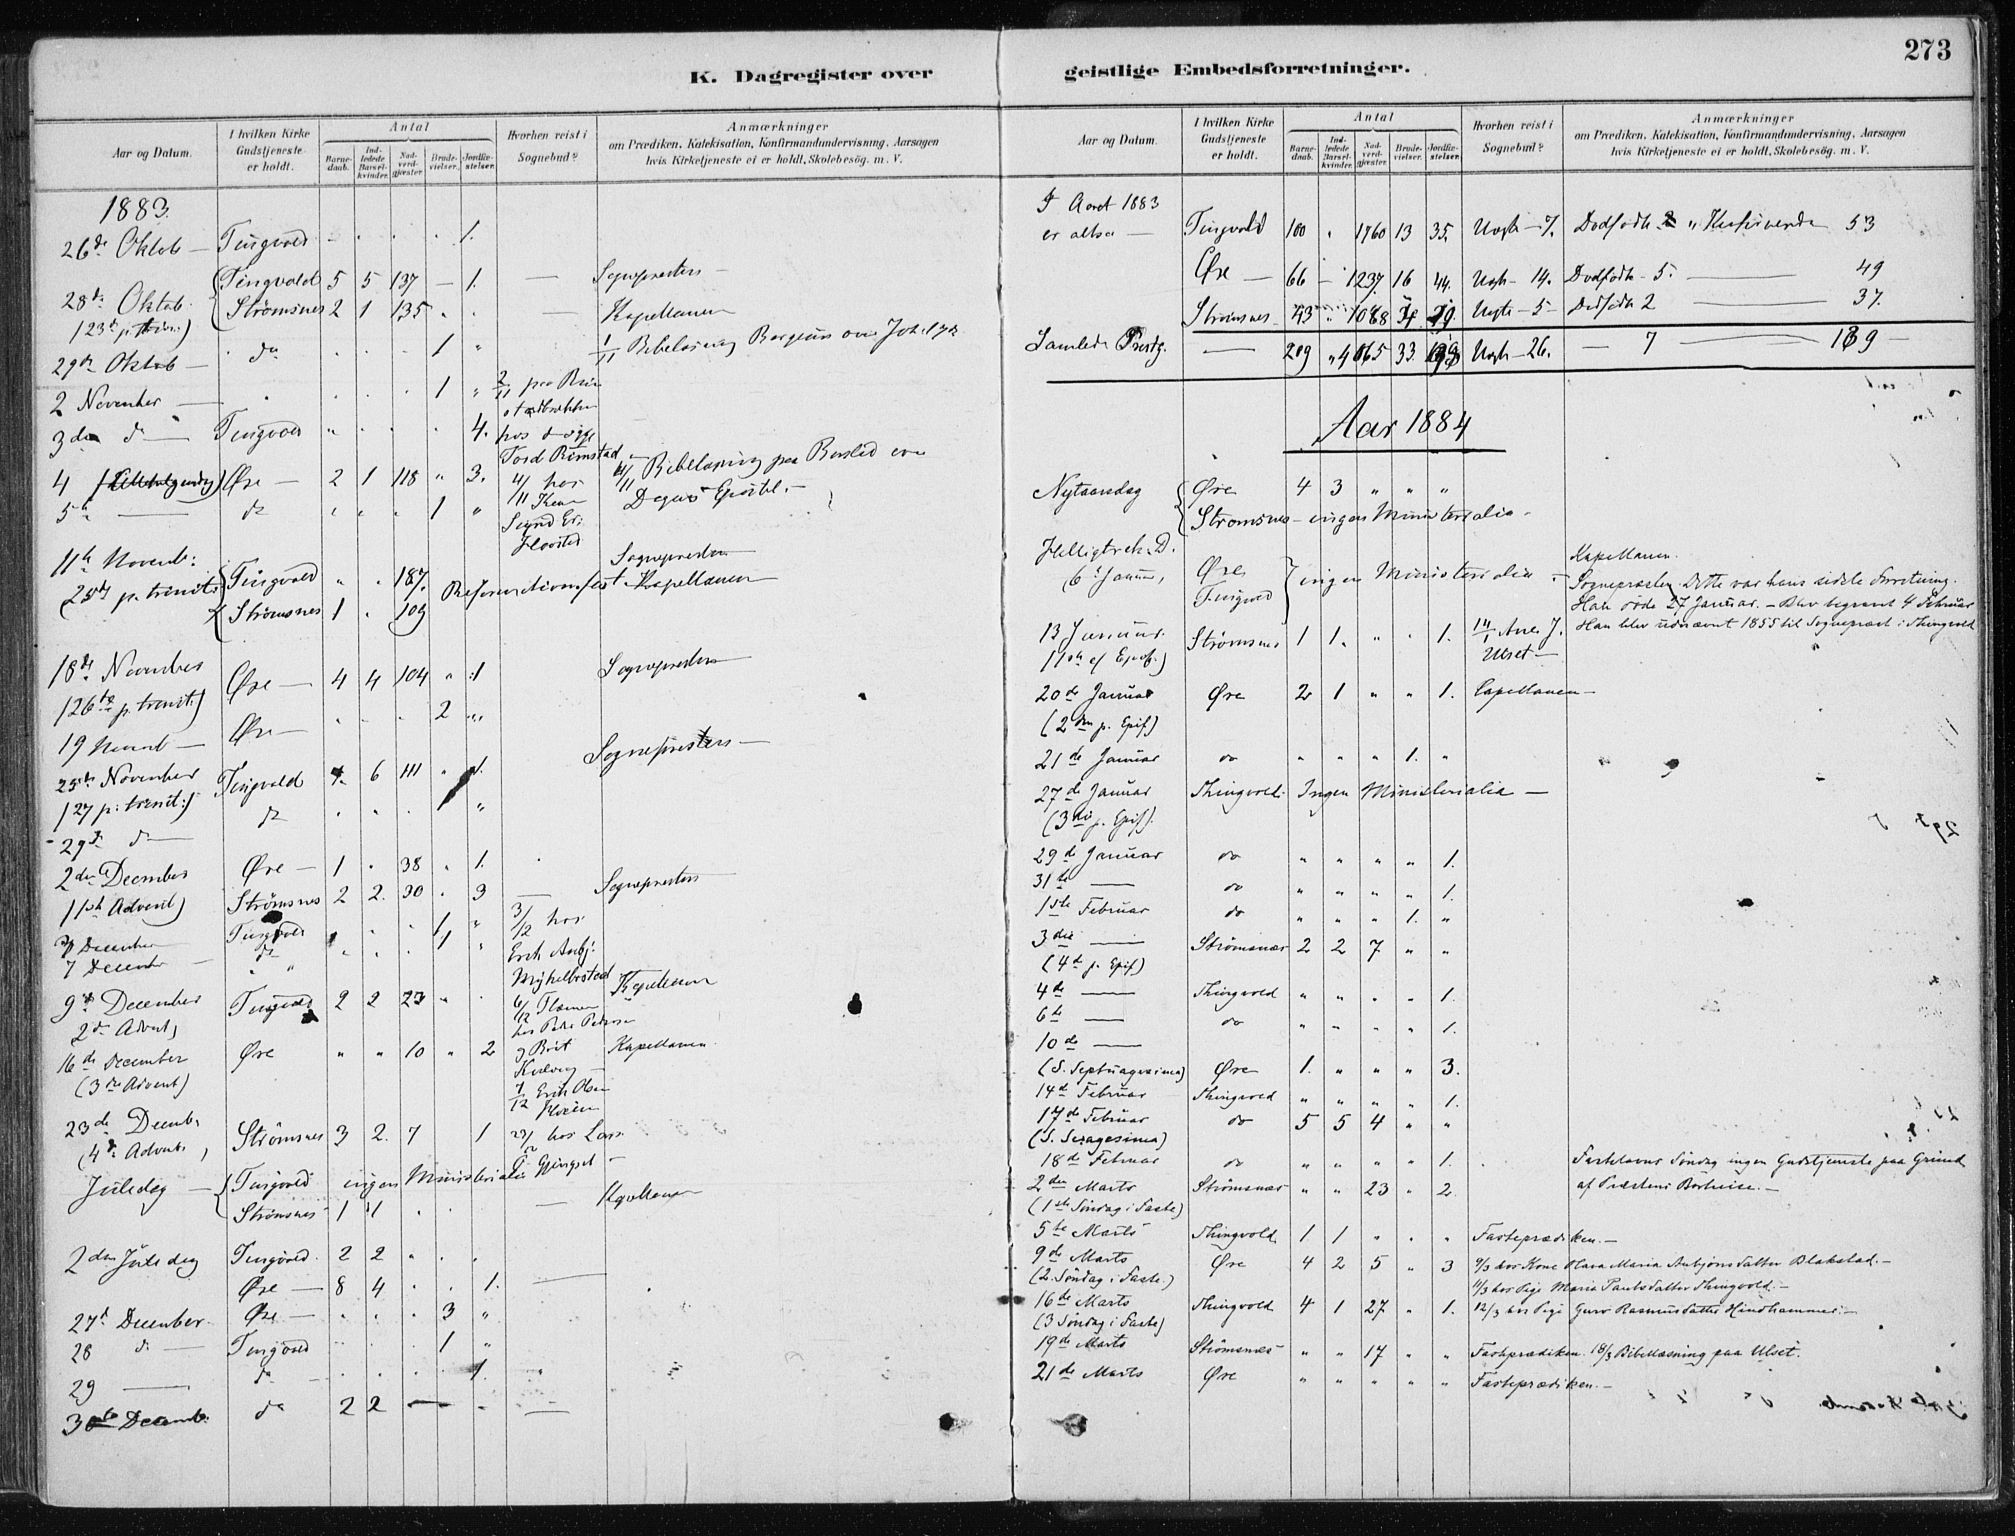 273
K. Dagregister over
geistlige Embedsforretninger.
Aar og Datum.
I hvilken Kirke Gudstjeneste er holdt.
Antal
Barne-daab.
Ind-ledede Barsel-kvinder.
Nad-verd-gjæster.
Brude-vielser.
Jordfæ-stelser.
Hvorhen reist i Sognebud?
Anmærkninger
om Prædiken, Katekisation, Konfirmandundervisning, Aarsagen
hvis Kirketjeneste ei er holdt, Skolebesög. m. V.
1883.
26de Oktob — Tingvold " " " " 1.
28de Oktob. Tingvold 5 5 137 — 1. — Sognepresten —
(23de p. trin.) Strömsnes 2 1 135 " " — Kapellanen
29de Oktob — do " " " 1 " 1/11 Bibellæsning
2 November — " " " 1 " 2/11 paa
3die do — Tingvold " " " " 4. hos
4 Øre — 2 1 118 " 3. 4/11 hos 4/11 Bibellæsning paa
5te — do " " " 1 "
11te Novemb: Sognepresten
(25de p. trinit.) Tingvold " " 187. Reformationsfest — Kapellanen
Strömsnes 1 " 109
18de November Øre — 4 4 104 " 1 Sognepresten
(26de p. trinit.)
19 Novemb — Øre — " " " 2 "
25de November Tingvold 4 6 111 " 1. Sognepresten —
(27 p. trinit.)
29de do do " " " 1 "
2den December Øre — 1 " 38 " 1.
(1ste Advent) Strömsnes 2 2. 30 " 3 — Sognepresten
December Tingvold " " 1 " 3/12 hos
7 December — do " " " 1 " Erik
9de December Tingvold 2 2 27 " " Kapellanen
2de Advent)
16de December Øre " " 10 " 2 Kapellanen.
(3die Advent)
23de Decemb. Strömsnes 3 2. 7 1 hos Lars
(4de Advent)
Juledag — Tingvold ingen Ministerialia
Strömsnes 1 1 " " — Kapellanen
2den Juledag Tingvold. 2 2 " " "
Øre — 8 4 " " 1. —
27de December. Øre — " " " 3 "
28 do — Tingvold " " " 1 "
29 — do — " " " " 1.
30te Decemb. do 2 2 — "
Aar og Datum.
I hvilken Kirke Gudstjeneste er holdt.
Antal
Barne-daab.
Ind-ledede Barsel-kvinder.
Nad-verd-gjæster.
Brude-vielser.
Jordfæ-stelser.
Hvorhen reist i Sognebud?
Anmærkninger
om Prædiken, Katekisation, Konfirmandundervisning, Aarsagen
hvis Kirketjeneste ei er holdt, Skolebesög. m. V.
I Aaret 1883
er altsaa — Tingvold 100 " 1760 13 35. Uægte — 7. Dødfødte 2 " Konfirmerede 53
Øre — 66 — 1237. 16 44. Uægte — 14. Dødfødte — 5. — 49
Strömsnes 43 " 1068 Uægte — 5 — Dødfødte 2 — 37.
Samlede Prestg. — 209 " 4065 33. Uægte — 26. — 7 — 139 —
Aar 1884
Nytaarsdag Øre 4 3 " " "
Strömsnes — ingen Ministerialia.
Helligtrek. D. Øre ingen Ministerialia — Kapellanen.
(6te Januar, Tingvold Sognepræsten. Dette var hans sidste Forretning.
Han døde 27 Januar. — Blev begravet 4 Februar
13 Januar. Strömsnes 1 1. " " 1. 14/1 Arne J. Ulset — Han blev udnævnt 1855 til Sognepræst i Thingvold
(1ste e/ Epif.)
20de Januar Øre 2 1 " " 1. Capellanen —
(2den p. Epif)
21de Januar do " " " 1. "
27de Januar Thingvold. Ingen Ministerialia —
(3die p. Epif).
29de Januar do " " " " 1.
31te — do " " " " 1.
1ste Februar do " " " 1. "
3die — Strömsnæs 2 2 7 " "
(4de p. Epif)
4de — Thingvold " " " " 1.
6te — do " " " " 1.
10de —
(S. Septuagesima) Øre 1. " " " 3.
14de Februar Thingvold " " " " 1.
17de Februar do 5 5 4 " "
(S. Sexagesima)
18de Februar do " " " " 1. Fastelavns Søndag ingen Gudstjeneste paa Grund
2den Marts Strömsnæs " " 23 " 2 af Præstens Bortreise. —
(1ste Søndag i Faste)
5te Marts Thingvold 1 1 " " " Fasteprædiken. —
9de Marts Øre 4 2 5 " 3 9/3 hos Kone Maria Blakstad. —
(2. Søndag i Faste.) 11/3 hos Pige Maria Paulsdatter Thingvold. —
16de Marts Thingvold 4 1 27 " 1. 12/3 hos Pige Guro Rasmusdatter Hindhammer. —
(3 Søndag i Faste)
19de Marts Strömsnes " " 17 " " Fasteprædiken. 18/3 Bibellæsning paa Ulset.
21de Marts Øre " " " " " Fasteprædiken. —